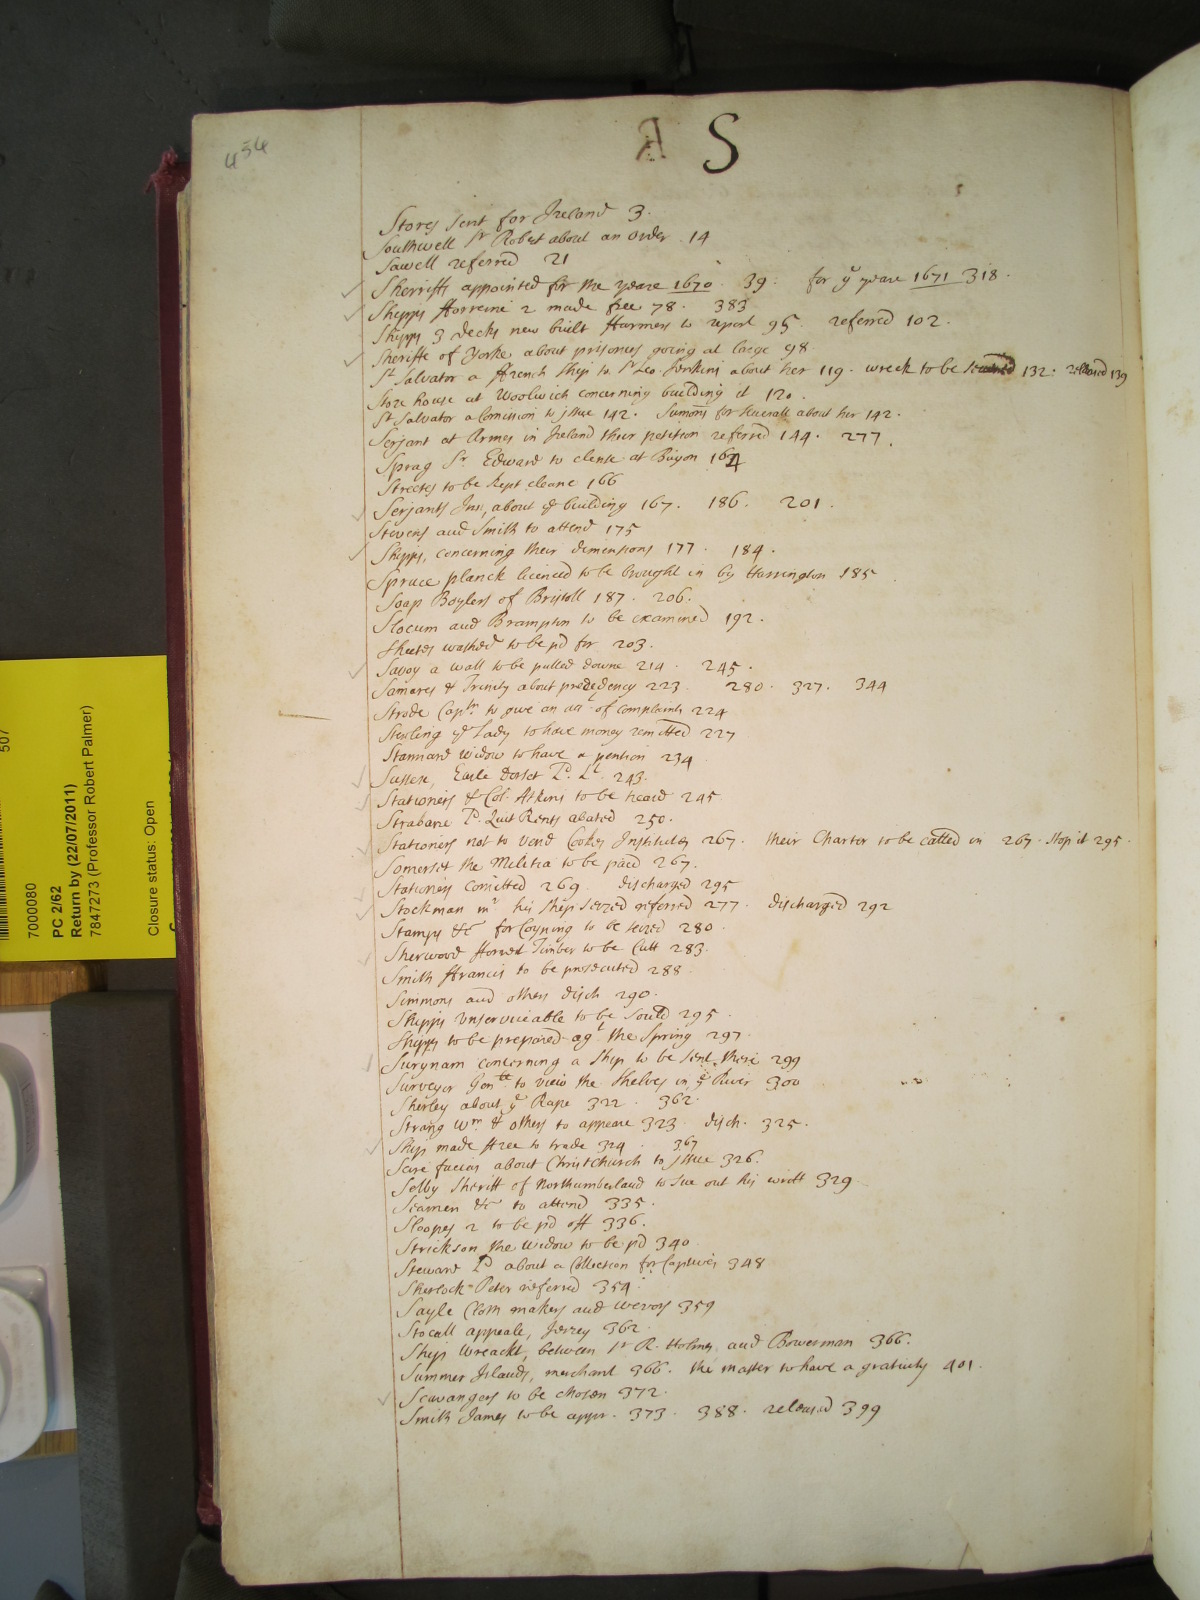 434
S
Stores sent for Ireland 3.
Southwell Sr Robert about an order 14
Sawell referred 21
Sherriffs appointed for the yeare 1670. 39. for ye yeare 1671 318.
Shipps fforreine 2 made free 78. 383
Shipps 3 decks new built ffarmers to report 95. referred 102.
Sheriffe of Yorke about prisoners going at large 98
St Salvator a ffrench ship to Sr Leo. Jenkins about her 119. wreck to be 132. released 139
Store house at Woolwich concerning building it 120.
St Salvator a Comission to issue 142. Sumons for about her 142.
Serjant at Armes in Ireland their petition referred 144. 277.
Sprag Sr. Edward to clense at 164
Streetes to be kept cleane 166
Serjants Inn, about ye building 167. 186. 201.
Stevens and Smith to attend 175
Shipps, concerning their dimensions 177. 184.
Spruce planck licenced to be brought in by Harrington 185
Soap Boylers of Bristoll 187. 206.
Slocum and Brampton to be examined 192.
Sheetes washed to be pd for 203.
Savoy a wall to be pulled downe 214. 245.
Samares & Trinity about precedency 223 280. 327. 344
Strode Captn to give an acct of complaints 224
Sterling ye Lady to have money remitted 227
Stannard widow to have a pention 234
Sussex, Earle Dorset Ld Lt. 243.
Stationers & Col. Atkins to be heard 245
Strabane Ld. Quit Rents abated 250.
Stationers not to vend Cookes Institutes 267. their Charter to be called in 267. stop it 295.
Somerset the Militia to be paid 267.
Stationers comitted 269. discharged 295
Stockman mr his ship seized referred 277. discharged 292
Stamps &c for Coyning to be seized 280
Sherwood fforrest Timber to be Cutt 283.
Smith ffrancis to be prosecuted 288
Simmons and others disch 290.
Shipps unserviceable to be sould 295.
Shipps to be prepared agt the Spring 297.
Surynam concerning a ship to be sent there 299
Surveyor Genll to view the Shelves in ye River 300
Sherley about ye Rape 322. 362.
Strang Wm & others to appeare 323 disch. 325.
Ship made ffree to trade 324. 367
Scire facias about Christchurch to issue 326.
Selby Sheriff of Northumberland to sue out his writt 329
Seamen &c to attend 335.
Sloopes 2 to be pd off 336.
Strickson the widow to be pd 340
Steward Ld about a Collection for Captives 348
Sherlock Peter referred 354.
Sayle Cloth makers and wevors 359
Stocall appeale, Jersey 362.
Ship Wreackt, between Sr R. Holmes and Bowerman 366.
Summer Islands, merchant 366. the master to have a gratuity 401.
Scavangers to be chosen 372.
Smith James to be appr. 373. 388. released 399
507
7000080
PC 2/62
Return by (22/07/2011)
7847273 (Professor Robert Palmer)
Closure status: Open